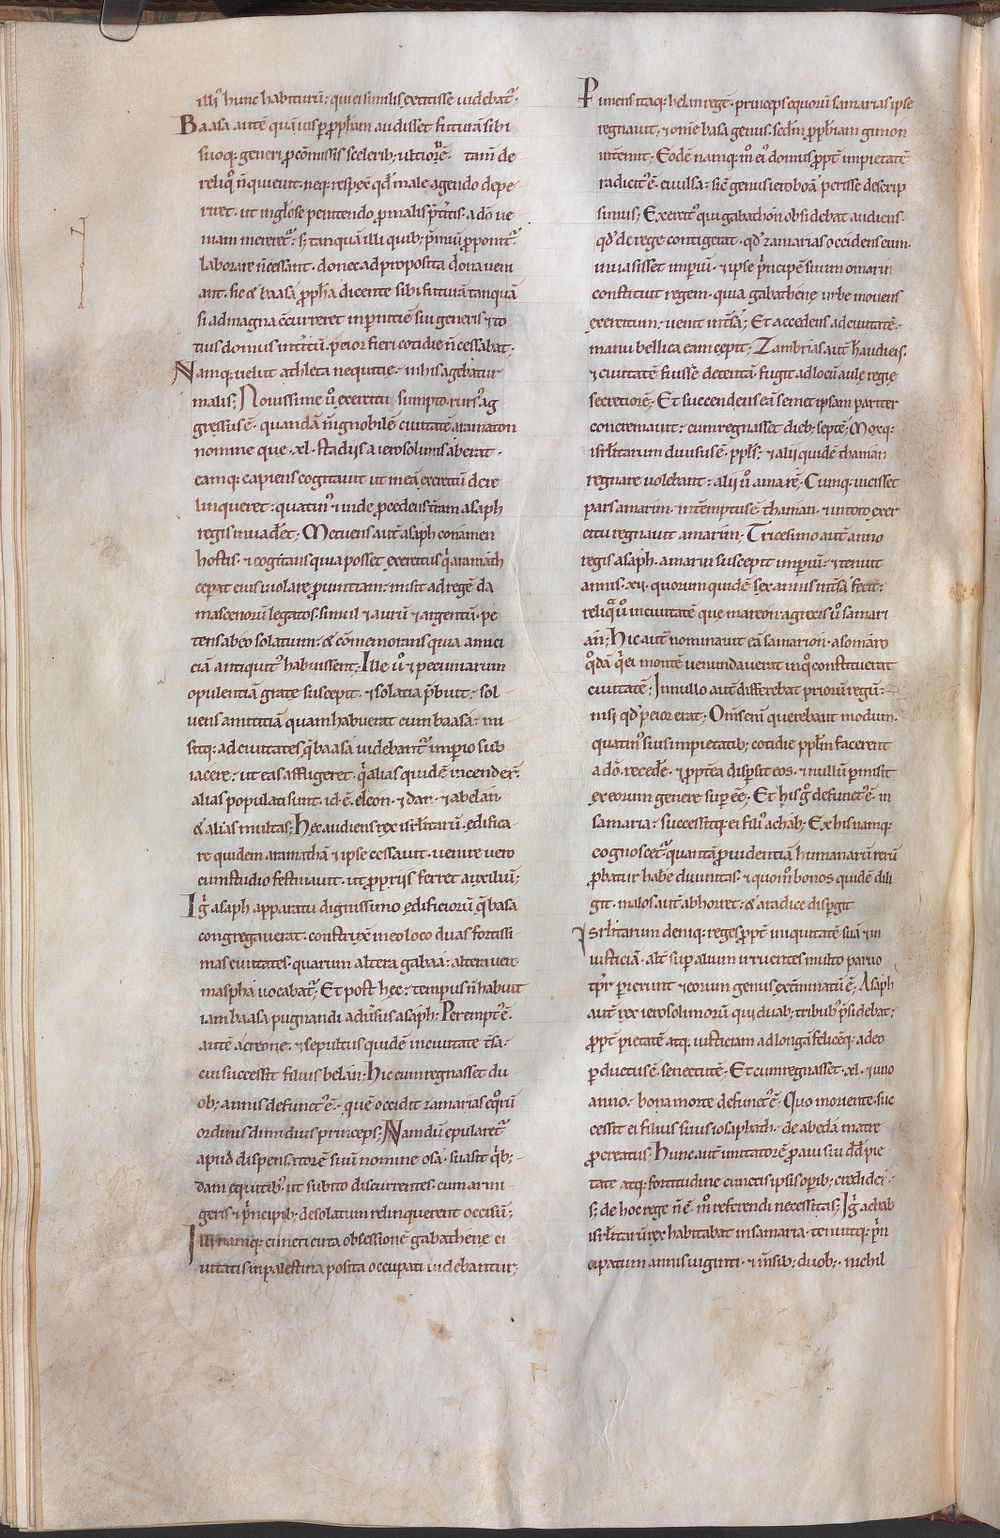 illi᷒ hunc habiturū; qui ei similis extitisse uidebat᷑;
Baasa autē quāuis p̱ ꝓph̄am audisset futurā sibi
suoq; generi ꝓ cōmissis scelerib; ultionē· tam̄ de
reliq᷒ n̄ quieuit· neq; respex̄ qd̄ male agendo depe
riret· ut inglose penitendo ꝓ malis p̄t̄itis· a dō ue
niam mereret᷑· s; tanquā illi quib; p̄miū ꝓponit᷑·
laborare n̄ cessant· donec ad proposita dona ueni
ant· sic & baasa ꝓph̄a dicente sibi futurā tanquā
si ad magna c̄curreret in p̱nitiē sui generis· & to
tius domus int̄itū· peior fieri cotidie n̄ cessabat·
Namq; uelut athleta nequitie· in his agebatur
malis; Nouissime u᷒ exercitu sumpto· rurs᷒ ag
gressus ē· quandā n̄ ignobilē ciuitatē aramaton
nomine que ·xl· stadiis a ierosolimis aberat·
eamq; capiens cogitauit ut in ea exercitū dere
linqueret· quatin᷒ & inde ꝓcedens t̄ram asaph
regis inuad̄et; Metuens aut̄ asaph conamen
hostis· & cogitans quia posset exercitus q̄ aramath
ceperat eius uiolare ꝓuintiam· misit ad regē da
mascenorū legatos· simul & aurū & argentū· pe
tens ab eo solatium· & cōmemorans quia amici
ciā antiquit᷒ habuissent; Ille u᷒ & pecuniarum
opulentiam grate suscepit· & solacia p̄buit· sol
uens amicitiā quam habuerat cum baasa· mi
sitq; ad ciuitates q̄ baasa uidebant᷑ imperio sub
iacere· ut eas affligeret· q̄ alias quidē incender̄·
alias populati sunt· id ē· eleon· & dan· & abelan·
& alias multas; Hec audiens rex isrl̄itarū· edifica
re quidem aramathā & ipse cessauit· uenire uero
cum studio festinauit· ut ꝓpriis ferret auxilium;
Ig᷒ asaph apparatu dignissimo edificiorū q̄ basa
congregauerat· construx̄ in eo loco duas fortissi
mas ciuitates· quarum altera gabaa· altera uero
maspha uocabat᷑; Et post hec· tempus n̄ habuit
iam baasa pugnandi aduersus asaph; Perempt᷒ ē·
autē a creone· & sepultus quidē in ciuitate t̄sa·
cui successit filius belan; Hic cum regnasset du
ob; annis defunct᷒ ē· quē occidit zamarias eq᷒rū
ordinis dimidius princeps; Nam dū epularet᷑
apud dispensatorē suū nomine osa· suasit q̄b;
dam equitib᷒ ut subito discurrentes· cum armi
geris & p̄ncipib; desolatum relinquerent occisū;
Illi namq; cuncti circa obsessionē gabathene ci
uitatis in palestina posita occupati uidebantur;
Pimens itaq; helan regē· princeps equorū samarias ipse
regnauit· & om̄e basa genus· scd̄m ꝓph̄iam gimon
int̄emit· Eodē namq; m᷒ ei᷒ domus ꝓpt̄ impietatē
radicit᷒ ē· euulsa· sic̄ genus ieroboā perisse descrip
simus; Exercit᷒ qui gabathon obsidebat audiens·
qd̄ de rege contigerat· qd̄ zamarias occidens eum·
inuasisset imperiū· & ipse p̄ncipē suum omarin
constituit regem· quia gabathene urbe mouens
exercitum· uenit in t̄sa; Et accedens ad ciuitatē·
manu bellica eam cepit; Zambrias aut̄ h̄ audiens·
& ciuitatē fuisse detentā· fugit ad locū aule regie
secretiorē; Et succendens eā semet ipsam pariter
concremauit· cum regnasset dieb; septē; Moxq;
isrl̄itarum diuisus ē· ppl̄s· & alii quidē thaman
regnare uolebant· alii u᷒ amarē; Cumq; uicisset
pars amarin· int̄emptus ē thaman· & in toto exer
citu regnauit amarin; Tricesimo aut̄ anno
regis asaph· amarin suscepit imperiū· & tenuit
annis ·xii· quorum quidē sex annis in t̄sa fecit·
reliq̄ u᷒ in ciuitate que mareon· a grecis u᷒ samari
an; Hic aut̄ nominauit eā samarion· a somaro
q᷒dā q̄ ei montē uenundauerat in q᷒ constituerat
ciuitatē; In nullo aut̄ differebat priorū regū·
nisi qd̄ peior erat; Om̄s eni querebant modum·
quatin᷒ suis impietatib; cotidie ppl̄m facerent
a dō· recede· & ꝓpt̄ea dispersit eos· & nullū p̱misit
ex eorum genere sup̱ eē· Et his g᷒ defunct᷒ ē in
samaria· successitq; ei fili᷒ achab; Ex his namq;
cognoscet᷑ quantā ꝓuidentiā humanarū rerū
ꝓbatur habe diuinitas· & quom᷒ bonos quidē dili
git· malos aut̄ abhorret· & a radice disp̱git
Isrl̄itarum deniq; reges ꝓpt̄ iniquitatē suā & in
iusticiā· alt̄ sup̱ alium irruentes multo paruo
tp̄r p̱ierunt & eorum genus ext̄minatū ē; Asaph
aut̄ rex ierosolimorū qui duab; tribub᷒ p̄sidebat·
ꝓpt̄ pietatē atq; iusticiam ad longā felicēq; a deo
p̱ductus ē· senectutē· Et cum regnasset ·xl· & uno
anno· bona morte defunct᷒ ē; Quo moriente· suc
cessit ei filius suus iosaphath· de abeda matre
ꝓcreatus; Hunc aut̄ imitatorē ꝓaui sui dd̄ pie
tate atq; fortitudine cunctis ipsis operib; credidei·
s; de hoc rege n̄ ē· m᷒ referendi necessitas; Ig᷒ achab
isrl̄itarū rex habitabat in samaria· tenuitq; p̄n
cipatum annis uiginti· & m̄sib; duob;· nichil